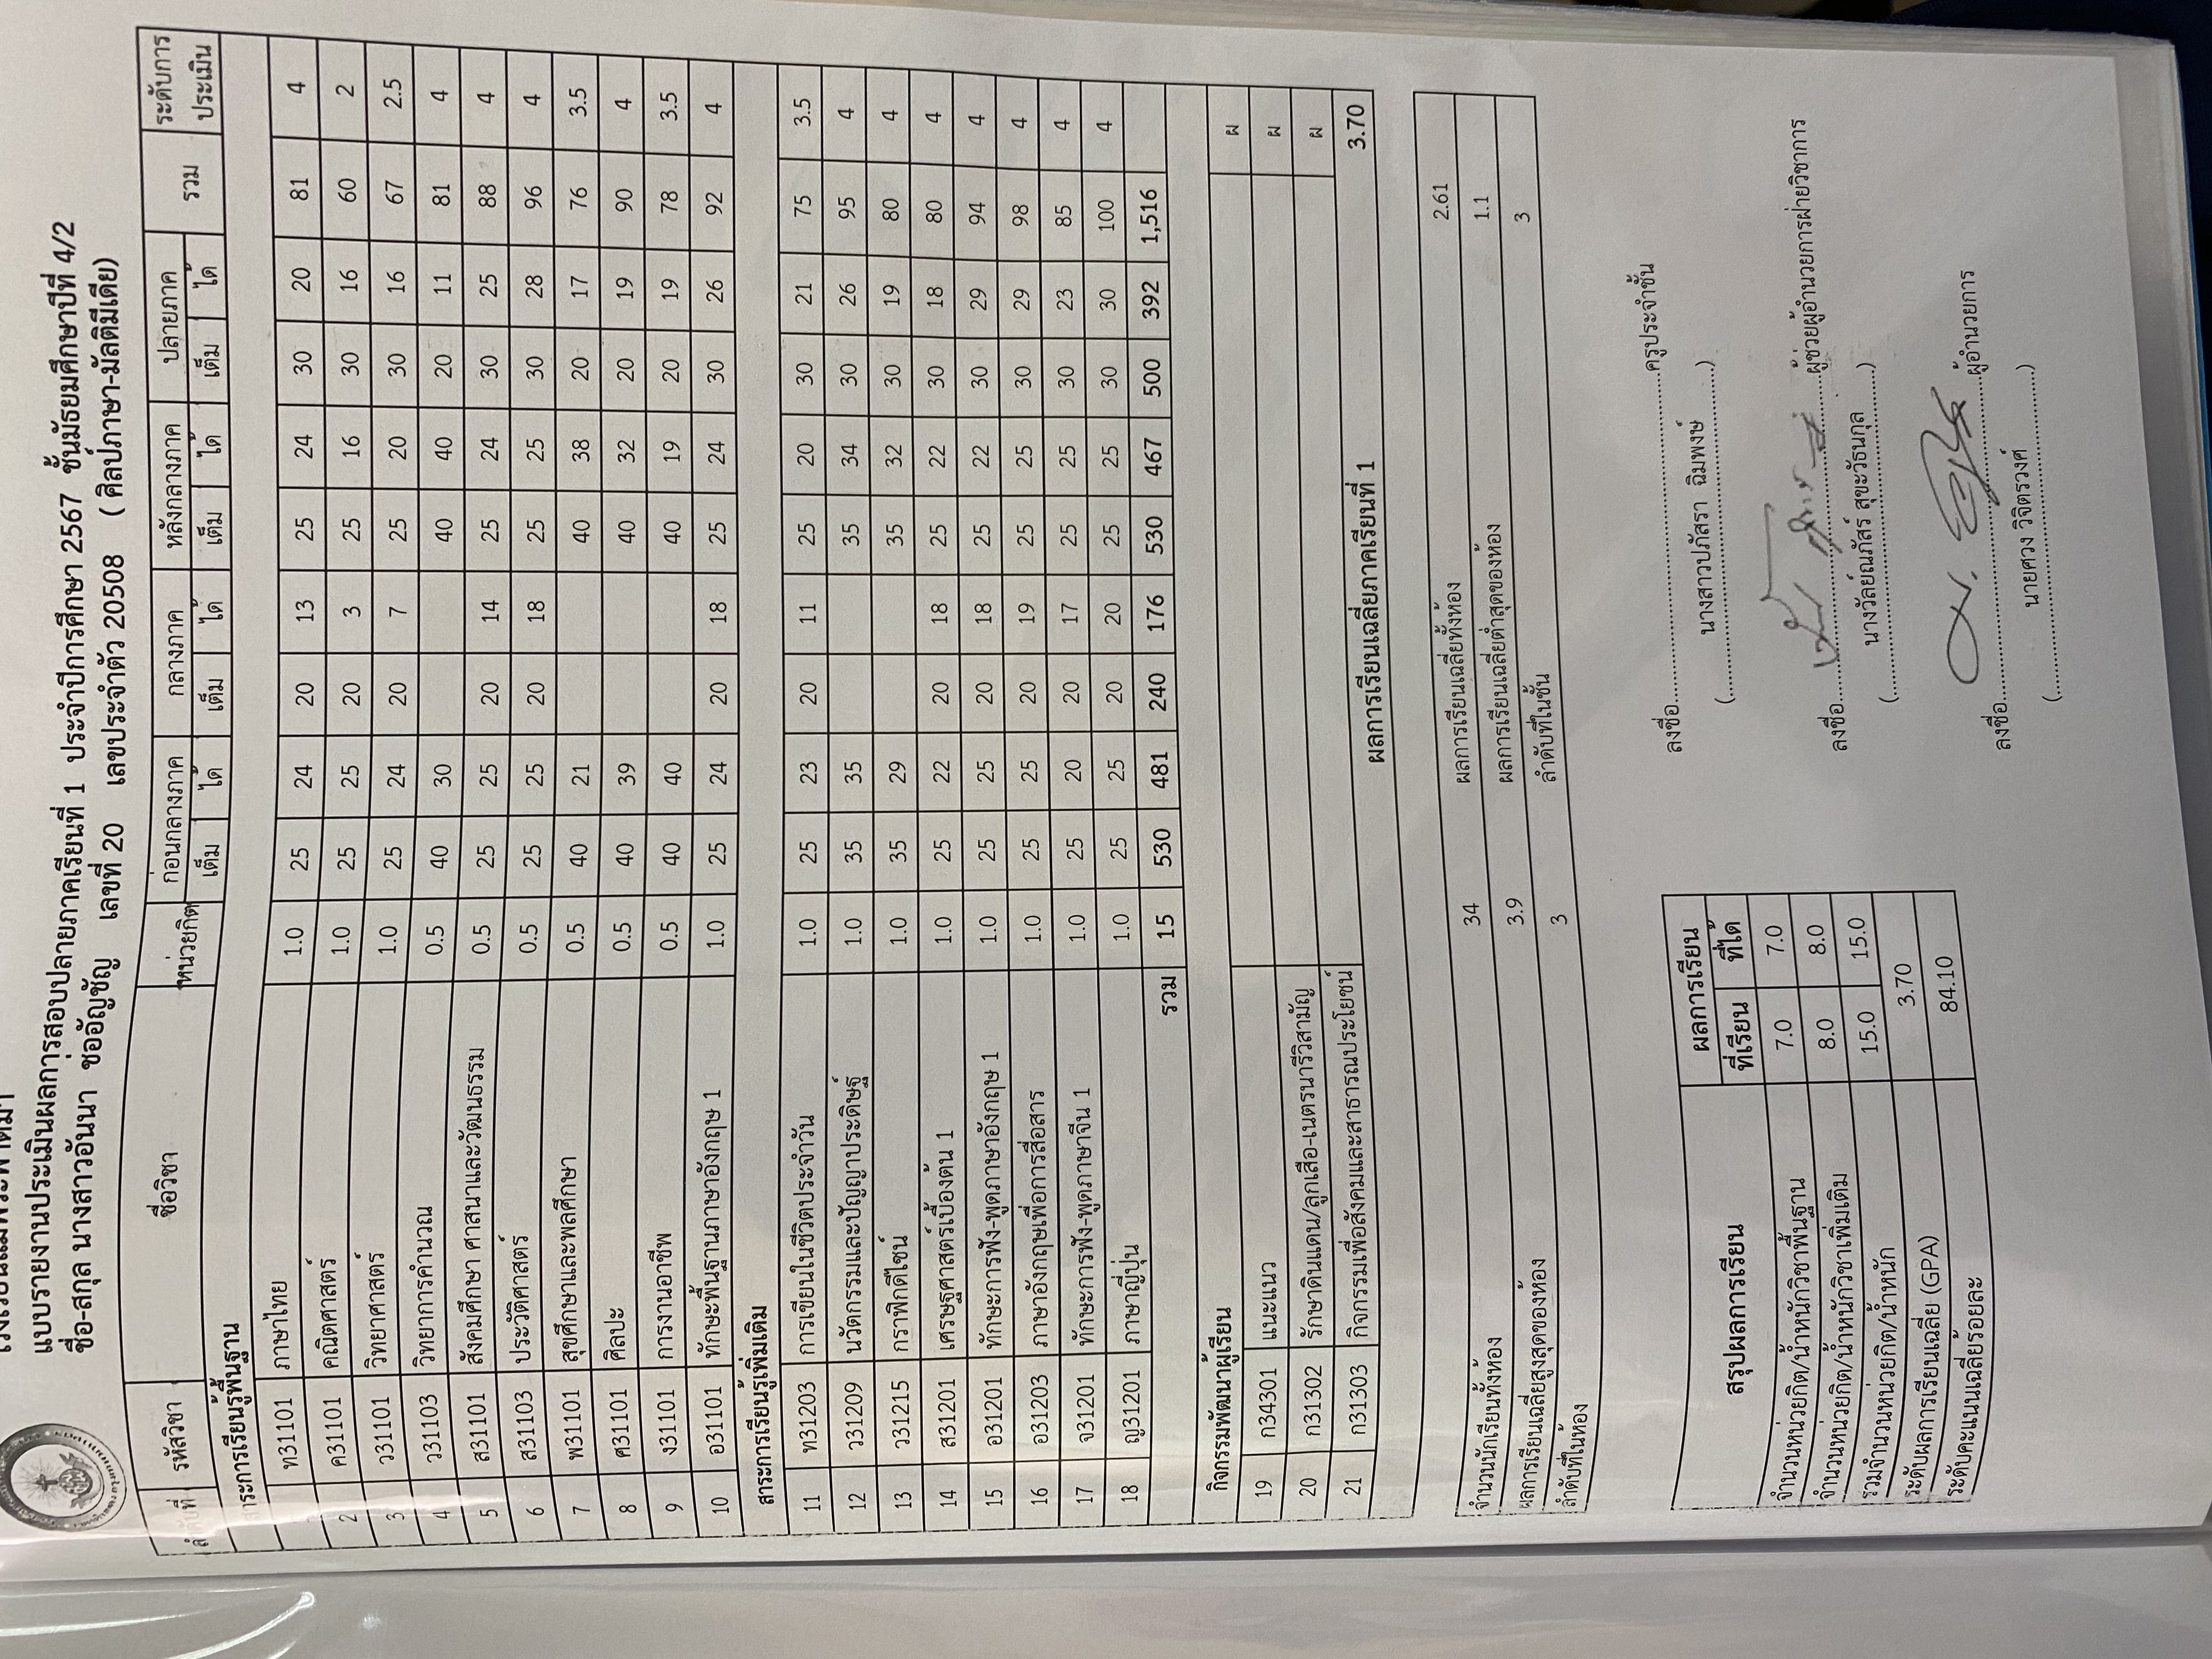 แบบรายงานประเมินผลการสอบปลายภาคเรียนที่ 1 ประจำปีการศึกษา 2567 ชั้นมัธยมศึกษาปีที่ 4/2
ชื่อ-สกุล นางสาวอันนา ช่ออัญชัญ เลขที่ 20 เลขประจำตัว 20508 ( ศิลป์ภาษา-มัลติมีเดีย)
ที่ รหัสวิชา ชื่อวิชา หน่วยกิต ก่อนกลางภาค กลางภาค หลังกลางภาค ปลายภาค รวม ระดับการประเมิน
เต็ม ได้ เต็ม ได้ เต็ม ได้ เต็ม ได้
สาระการเรียนรู้พื้นฐาน
ท31101 ภาษาไทย 1.0 25 24 20 13 25 24 30 20 81 4
2 ค31101 คณิตศาสตร์ 1.0 25 25 20 3 25 16 30 16 60 2
3 ว31101 วิทยาศาสตร์ 1.0 25 24 20 7 25 20 30 16 67 2.5
4 ว31103 วิทยาการคำนวณ 0.5 40 30 40 40 20 11 81 4
5 ส31101 สังคมศึกษา ศาสนาและวัฒนธรรม 0.5 25 25 20 14 25 24 30 25 88 4
6 ส31103 ประวัติศาสตร์ 0.5 25 25 20 18 25 25 30 28 96 4
7 พ31101 สุขศึกษาและพลศึกษา 0.5 40 21 40 38 20 17 76 3.5
8 ศ31101 ศิลปะ 0.5 40 39 40 32 20 19 90 4
9 ง31101 การงานอาชีพ 0.5 40 40 40 19 20 19 78 3.5
10 อ31101 ทักษะพื้นฐานภาษาอังกฤษ 1 1.0 25 24 20 18 25 24 30 26 92 4
สาระการเรียนรู้เพิ่มเติม
11 ท31203 การเขียนในชีวิตประจำวัน 1.0 25 23 20 11 25 20 30 21 75 3.5
12 ว31209 นวัตกรรมและปัญญาประดิษฐ์ 1.0 35 35 35 34 30 26 95 4
13 ว31215 กราฟิกดีไซน์ 1.0 35 29 35 32 30 19 80 4
14 ส31201 เศรษฐศาสตร์เบื้องต้น 1 1.0 25 22 20 18 25 22 30 18 80 4
15 อ31201 ทักษะการฟัง-พูดภาษาอังกฤษ 1 1.0 25 25 20 18 25 22 30 29 94 4
16 อ31203 ภาษาอังกฤษเพื่อการสื่อสาร 1.0 25 25 20 19 25 25 30 29 98 4
17 จ31201 ทักษะการฟัง-พูดภาษาจีน 1 1.0 25 20 20 17 25 25 30 23 85 4
18 ญ31201 ภาษาญี่ปุ่น 1.0 25 25 20 20 25 25 30 30 100 4
รวม 15 530 481 240 176 530 467 500 392 1,516
กิจกรรมพัฒนาผู้เรียน
19 ก34301 แนะแนว ผ
20 ก31302 รักษาดินแดน/ลูกเสือ-เนตรนารีวิสามัญ ผ
21 ก31303 กิจกรรมเพื่อสังคมและสาธารณประโยชน์ ผ
ผลการเรียนเฉลี่ยภาคเรียนที่ 1 3.70
จำนวนนักเรียนทั้งห้อง 34 ผลการเรียนเฉลี่ยทั้งห้อง 2.61
ผลการเรียนเฉลี่ยสูงสุดของห้อง 3.9 ผลการเรียนเฉลี่ยต่ำสุดของห้อง 1.1
ลำดับที่ในห้อง 3 ลำดับที่ในชั้น 3
สรุปผลการเรียน ผลการเรียน
ที่เรียน ที่ได้
จำนวนหน่วยกิต/น้ำหนักวิชาพื้นฐาน 7.0 7.0
จำนวนหน่วยกิต/น้ำหนักวิชาเพิ่มเติม 8.0 8.0
รวมจำนวนหน่วยกิต/น้ำหนัก 15.0 15.0
ระดับผลการเรียนเฉลี่ย (GPA) 3.70
ระดับคะแนนเฉลี่ยร้อยละ 84.10
ลงชื่อ..........ครูประจำชั้น
(นางสาวปภัสรา ฉิมพงษ์)
ลงชื่อ..........ผู้ช่วยผู้อำนวยการฝ่ายวิชาการ
(นางวัลย์ณภัสร์ สุขะวัธนกุล)
ลงชื่อ..........ผู้อำนวยการ
(นายศวง วิจิตรวงศ์)